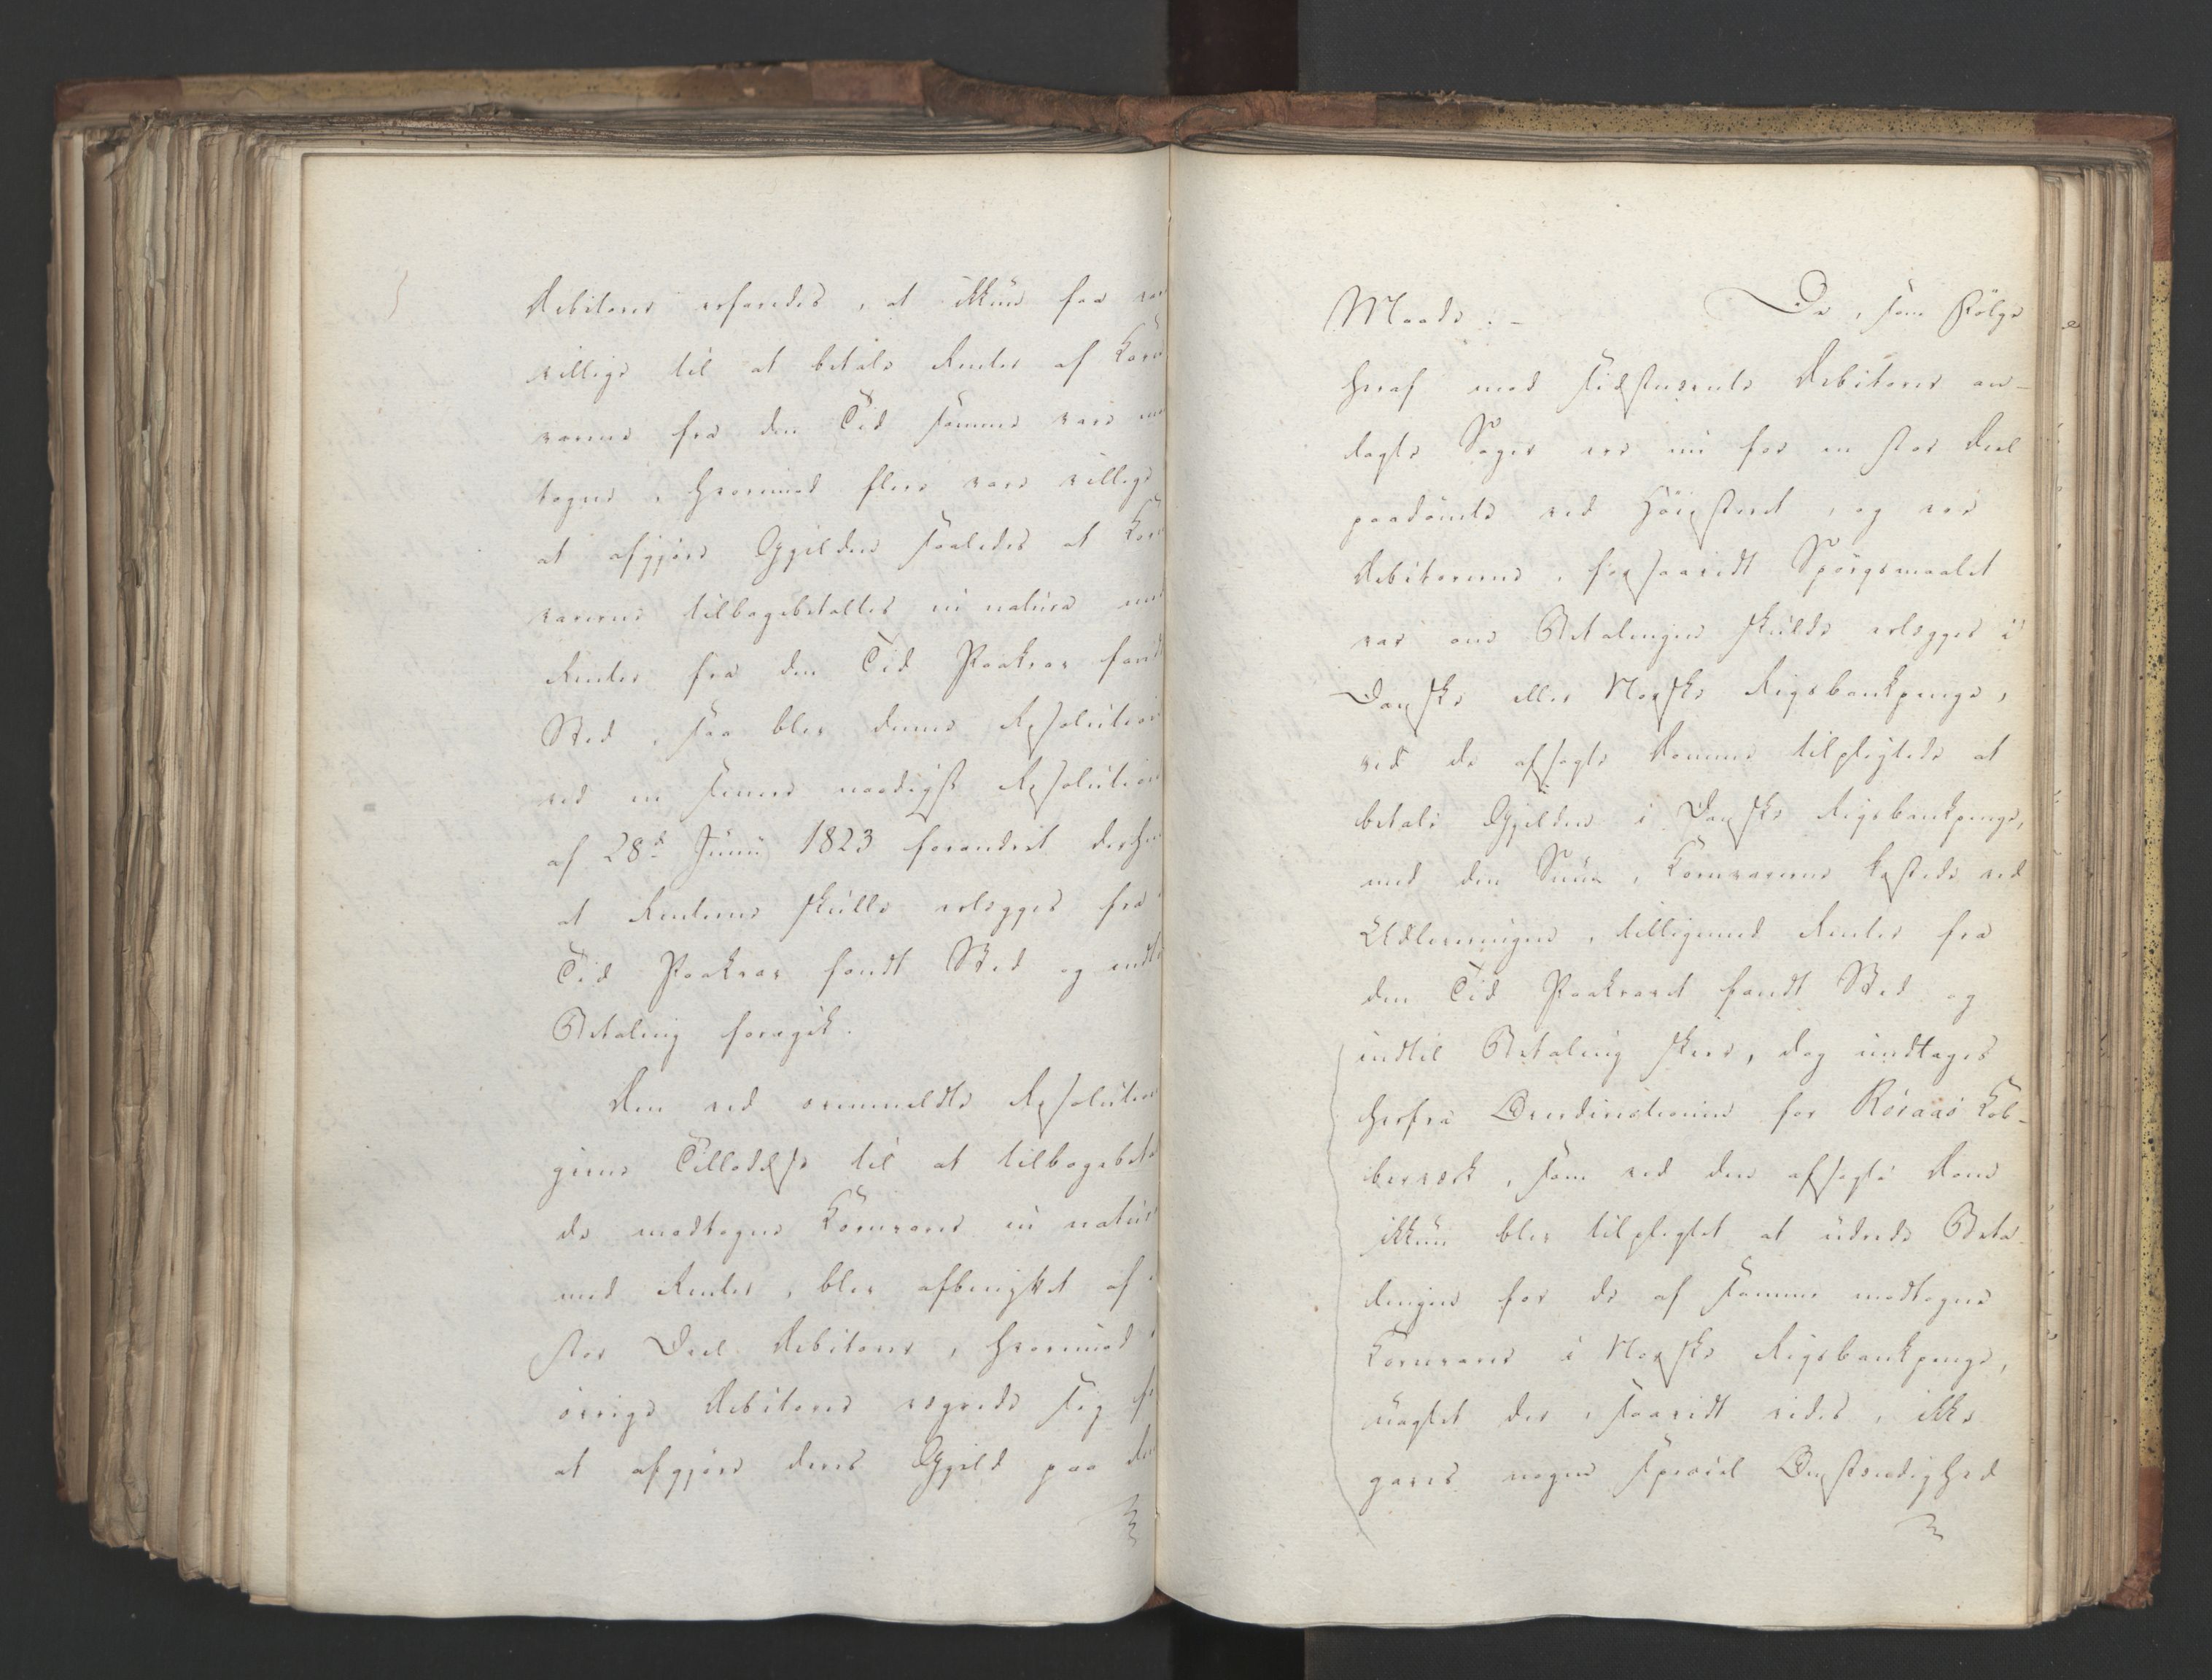 Debitorer erfaredes, at ikkun faa var
villige til at betale Renter af Korn
varene fra den Tid samme vare mod
tagne, hvorimod flere vare villige
at afgjøre Gjelden saaledes at Korn
varerne tilbagebetaltes in natura med
Renter fra den Tid Paakrav fandt
Sted, saa blev denne Resolution
ved en senere naadigst Resolution
af 28d Junii 1823 forandret derhen
at Renterne skulle erlægges fra
Tid Paakrav fandt Sted og indtil
Betaling foregik.
Den ved ovenmeldte Resolution
givne Tilladelse til at tilbagebeta
de modtagne Kornvarer in natura
med Renter, blev afbenyttet af
stor Deel Debitorer, hvorimod
øvrige Debitorer vægrede sig f
at afgjøre deres Gjeld paa den
Maade. -
De, som Følge
heraf mod sidstnævnte Debitorer an-
lagte Sager ere nu for en stor Deel
paadømte ved Høiesteret, og ere
Debitorerne, forsaavidt Spørgsmaalet
var om Betalingen skulde erlægges i
Danske eller Norske Rigsbankpenge,
ved de afsagte Domme tilpligtede at
betale Gjelden i Danske Rigsbankpenge,
med den Sum, Kornvarerne kostede ved
Udleveringen, tilligemed Renter fra
den Tid Paakravet fandt Sted og
indtil Betaling skeer, dog undtages
herfra Directionen for Röraas Kob-
berværk, som ved den afsagte Dom
ikkun blev tilpligtet at udrede Beta-
lingen for de af samme modtagne
Kornvarer i Norske Rigsbankpenge,
uagtet der, saavidt vides, ikke
gaves nogen speciel Omstændighed